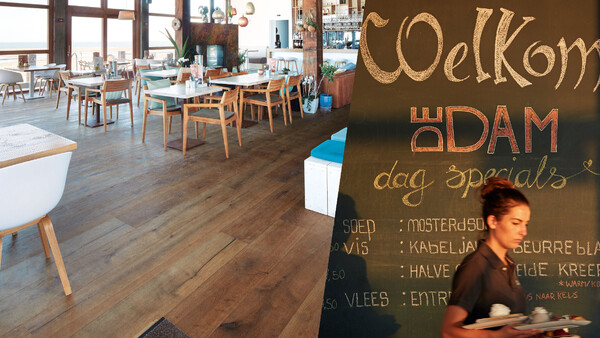 Welkom
DE DAM
dag specials
SOEP : MOSTERDSO
VIS : KABELJA BEURRE BLA
: HALVE EIDE KREEF
*WARM/KO
VLEES : ENTRE NAAR KEUS